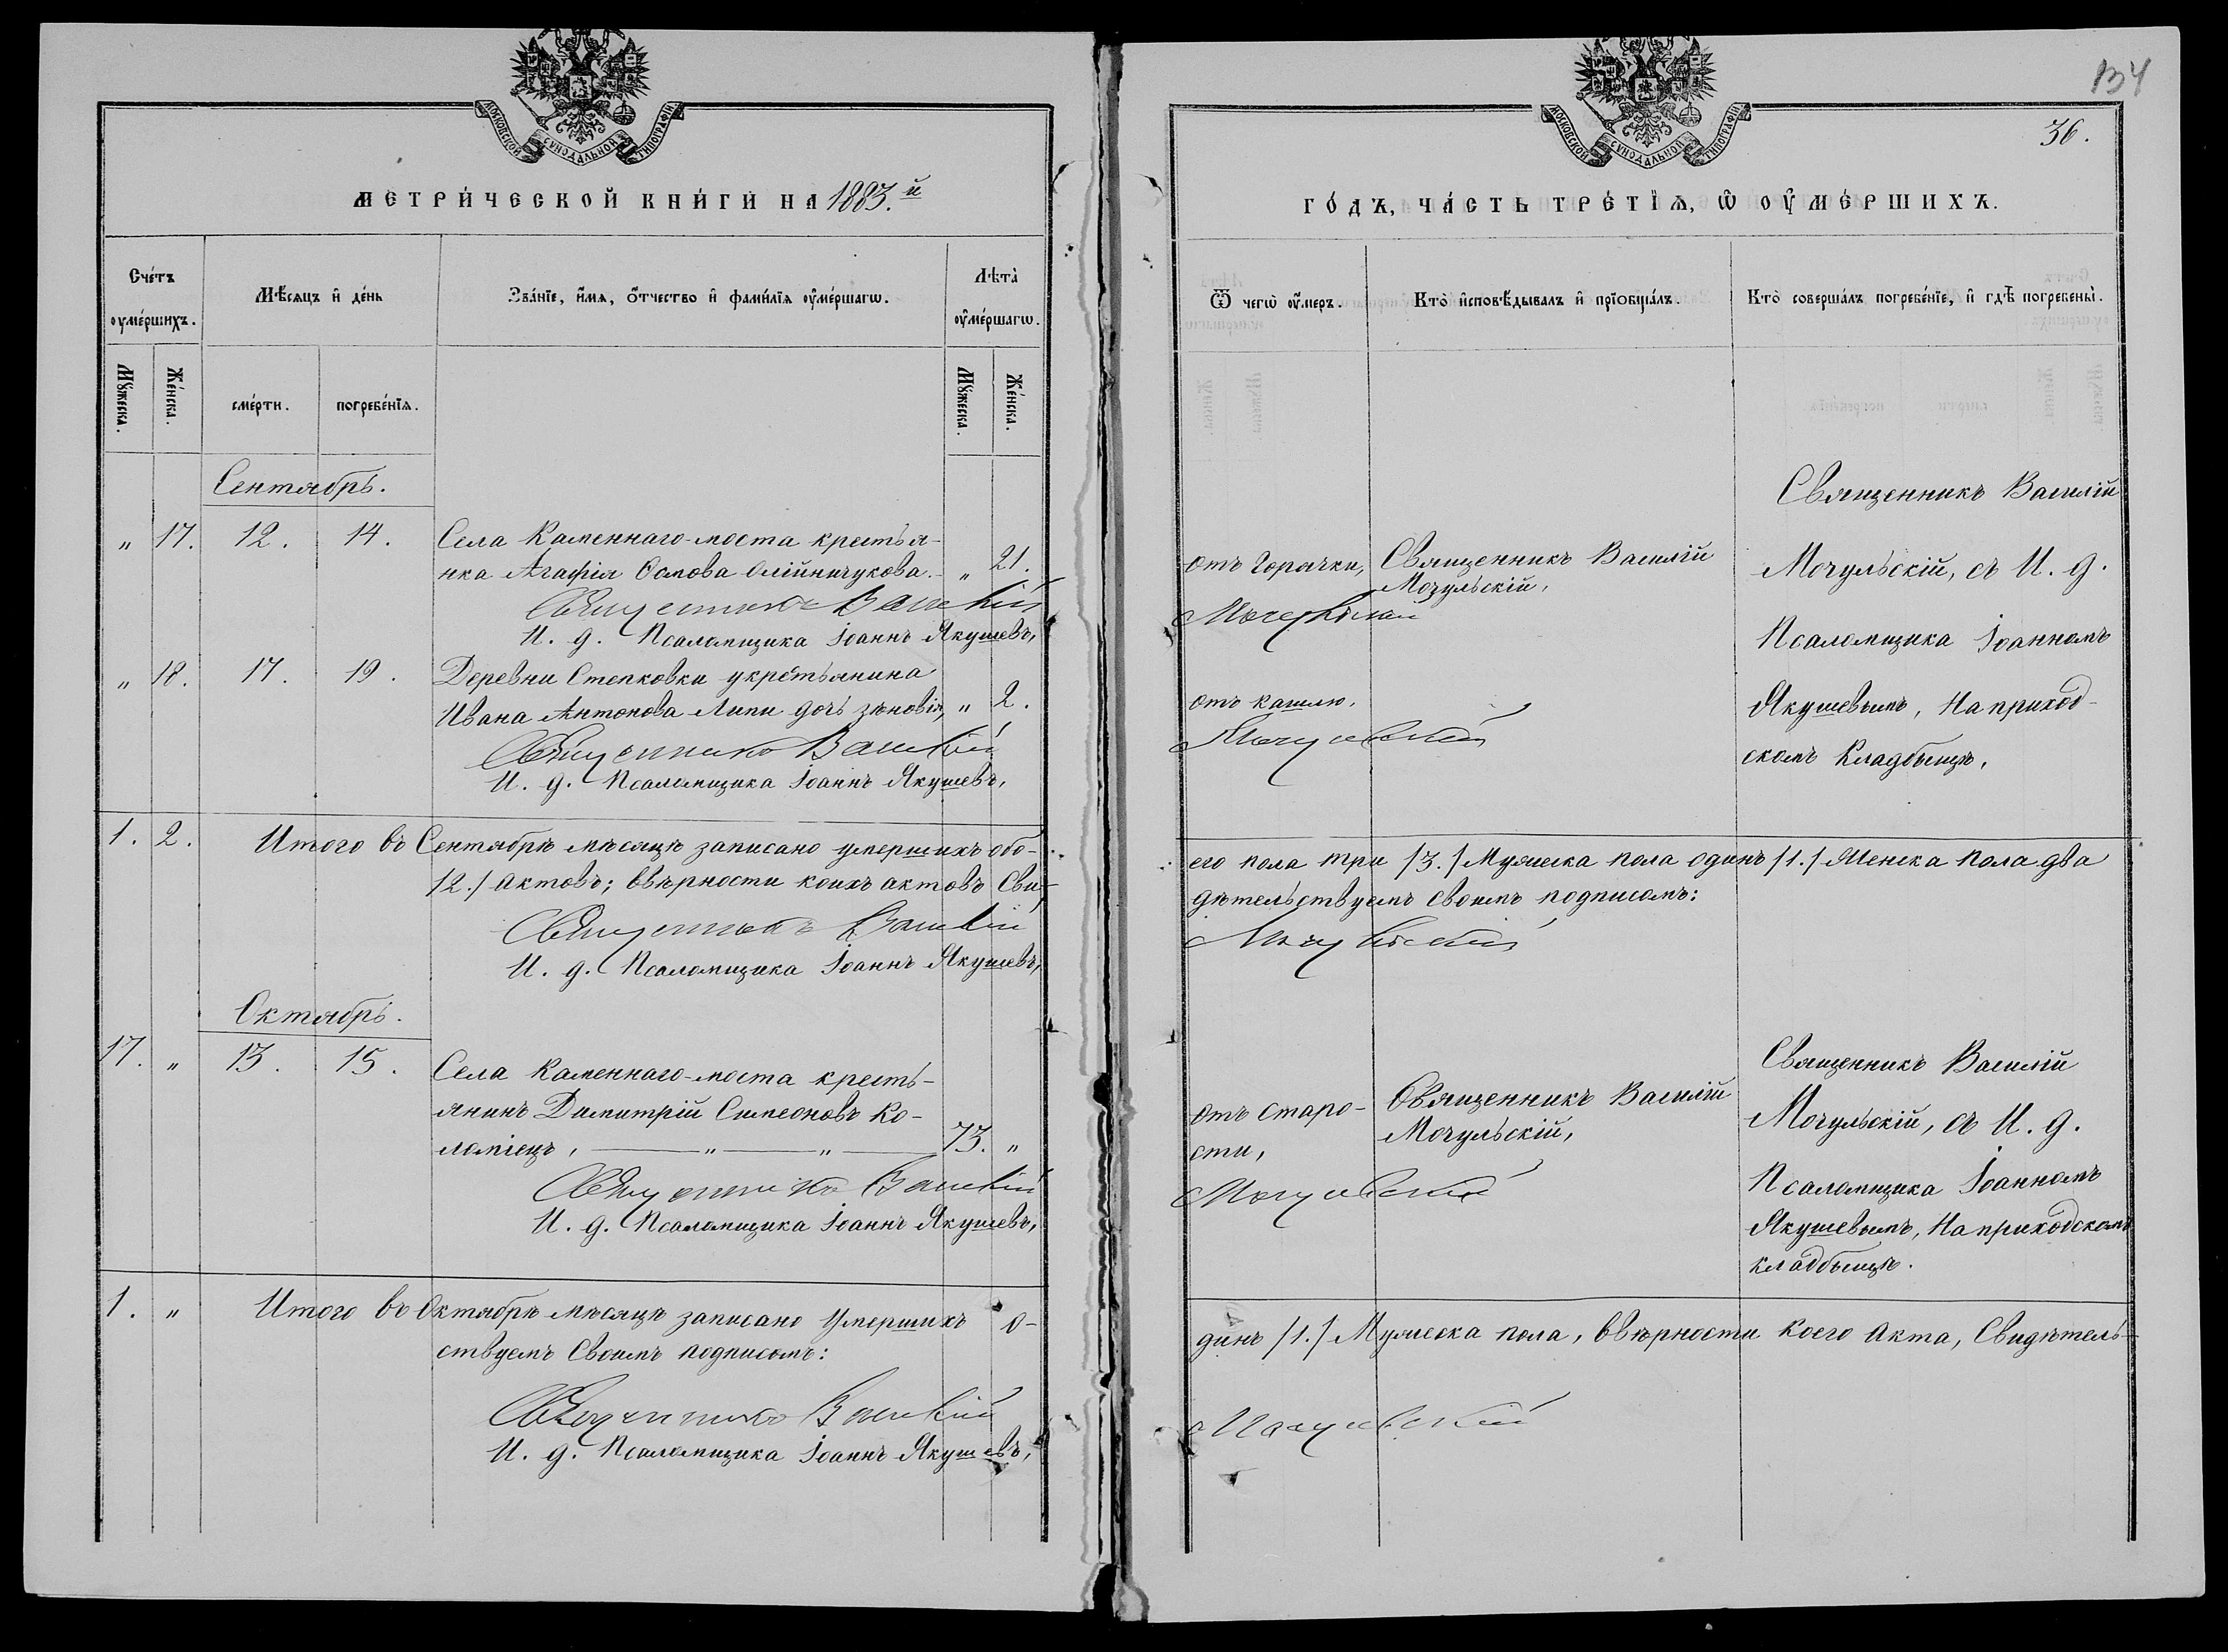 МОСКОВСКОЙ СѴНОДАЛЬНОЙ ТИПОГРАФІИ
МЕТРИ́ЧЕСКОЙ КНИ́ГИ НА 1883.й
Сче́тъ оумéршихъ.
Мѣ́сяцъ и҆ де́нь
Зва́нїе, и҆́мѧ, ѻ҆́тчество и҆ фамі́лїѧ оу҆ме́ршагѡ.
Лѣта̀ оу҆ме́ршагѡ.
Мꙋ́жеска.
Же́нска.
сме́рти.
погребе́нїѧ.
Мꙋ́жеска.
Же́нска.
Сентябрь.
„ 17. 12. 14. Села Каменнаго-моста крестья-
нка Агафія Осипова Олійничукова. „ 21.
Священникъ Василій
И. д. Псаломщика Іоаннъ Якушевъ,
„ 18. 17. 19. Деревни Степковки укрестьянина
Ивана Антонова Липи дочь зѣновія, „ 2.
Священникъ Василій
И. д. Псаломщика Іоаннъ Якушевъ,
1. 2. Итого въ Сентябрѣ мѣсяцѣ записано умершихъ обо-
/2./ актовъ; ввѣрности коихъ актовъ Сви-
Священникъ Василій
И. д. Псаломщика Іоаннъ Якушевъ,
Октябрь.
17. „ 13. 15. Села Каменнаго-моста кресть-
янинъ Димитрій Симеоновъ Ко-
ломіецъ, — „ — „ — 73. „
Священникъ Василій
И. д. Псаломщика Іоаннъ Якушевъ,
1. „ Итого въ Октябрѣ мѣсяцѣ записано Умершихъ о-
ствуемъ Своимъ подписомъ:
Священникъ Василій
И. д. Псаломщика Іоаннъ Якушевъ,
134
36.
МОСКОВСКОЙ СѴНОДАЛЬНОЙ ТИПОГРАФІИ
ГО́ДЪ, ЧА́СТЬ ТРЕ́ТЇѦ, Ѡ҆ ОУ҆МЕ́РШИХЪ.
Ѿ чегѡ̀ оу҆́меръ.
Кто̀ и҆сповѣ́дывалъ и҆ прїобща́лъ.
Кто̀ соверша́лъ погребе́нїе, и҆ гдѣ̀ погребены̀.
отъ Горячки,
Священникъ Василій
Мочульскій,
Мочульскій
Священникъ Василій
Мочульскій, съ И. д.
Псаломщика Іоанномъ
Якушевымъ, На приход-
скомъ Кладбыщѣ,
отъ кашлю,
Мочульскій
его пола три /3./ Мужеска пола одинъ /1./ Женска пола два
дѣтельствуемъ своимъ подписомъ:
Мочульскій
отъ старо-
сти,
Священникъ Василій
Мочульскій,
Мочульскій
Священникъ Василій
Мочульскій, съ И. д.
Псаломщика Іоанномъ
Якушевымъ, На приходскомъ
кладбыщѣ.
динъ /1./ Мужеска пола, ввѣрности коего Акта, Свидѣтель-
Мочульскій